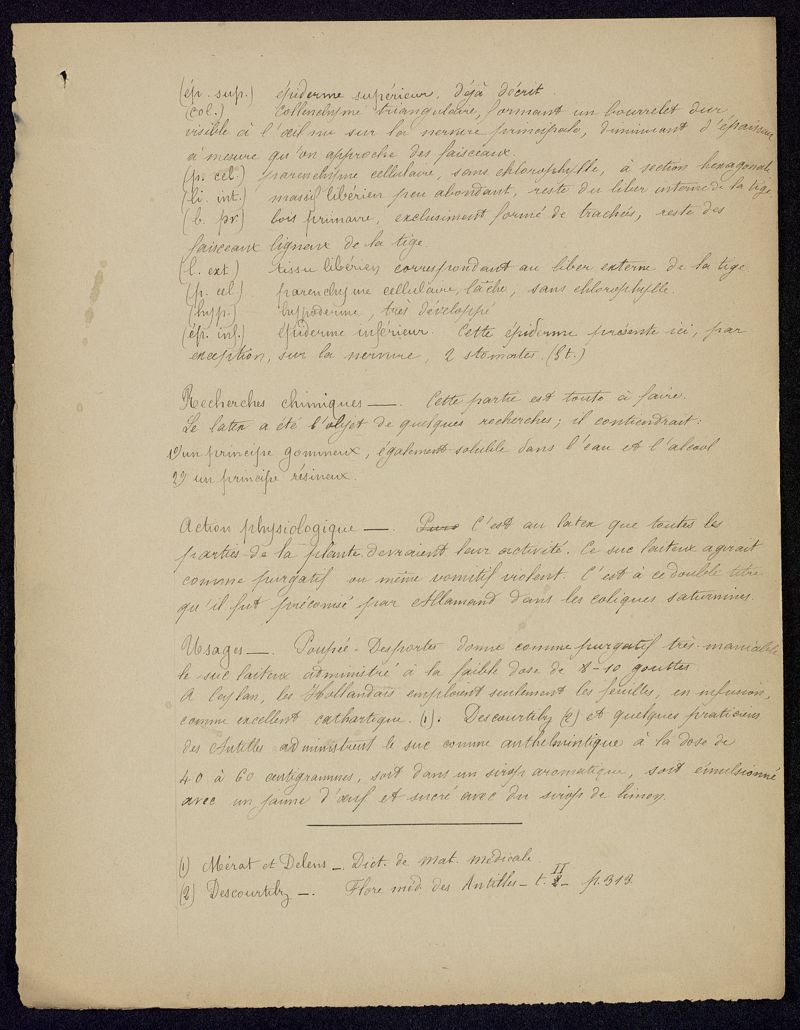 (ép. sup.) épiderme supérieur, déjà décrit.
(col.) Collenchyme triangulaire, formant un bourrelet dur
visible à l'œil nu sur la nervure principale, diminuant d'épaisseur
à mesure qu'on approche des faisceaux.
(p. cel) parenchyme cellulaire, sans chlorophylle, à section hexagonale
(li. int.) massif libérien peu abondant, reste du liber interne de la tige
(b. pr) bois primaire, exclusiment formé de trachées, reste des
faisceaux ligneux de la tige.
(l. ext) tissu libérien correspondant au liber externe de la tige
(p. cel) parenchyme cellulaire, lâche, sans chlorophylle.
(hyp.) hypoderme, très développé.
(ép. inf.) épiderme inférieur. Cette épiderme présente ici, par
exception, sur la nervure, 2 stomates. (St.)
Recherches chimiques —. Cette partie est toute à faire.
Le latex a été l'objet de quelques recherches; il contiendrait:
1º/ un principe gommeux, également soluble dans l'eau et l'alcool
2º/ un principe résineux.
Action physiologique —. C'est au latex que toutes les
parties de la plante devraient leur activité. Ce suc laiteux agirait
comme purgatif ou même vomitif violent. C'est à ce double titre
qu'il fut préconisé par Allamand dans les coliques saturnines.
Usages —. Poupée-Desportes donne comme purgatif très-maniable
le suc laiteux administré à la faible dose de 8-10 gouttes.
A Ceylan, les Hollandais emploient seulement les feuilles, en infusion,
comme excellent cathartique. (1). Descourtilz (2) et quelques praticiens
des Antilles administrent le suc comme anthelmintique à la dose de
40 à 60 centigrammes, soit dans un sirop aromatique, soit émulsionné
avec un jaune d'œuf et sucré avec du sirop de limon.
(1) Mérat et Delens —. Dict. de mat. médicale.
(2) Descourtilz —. Flore méd. des Antilles — t. II — p. 313.